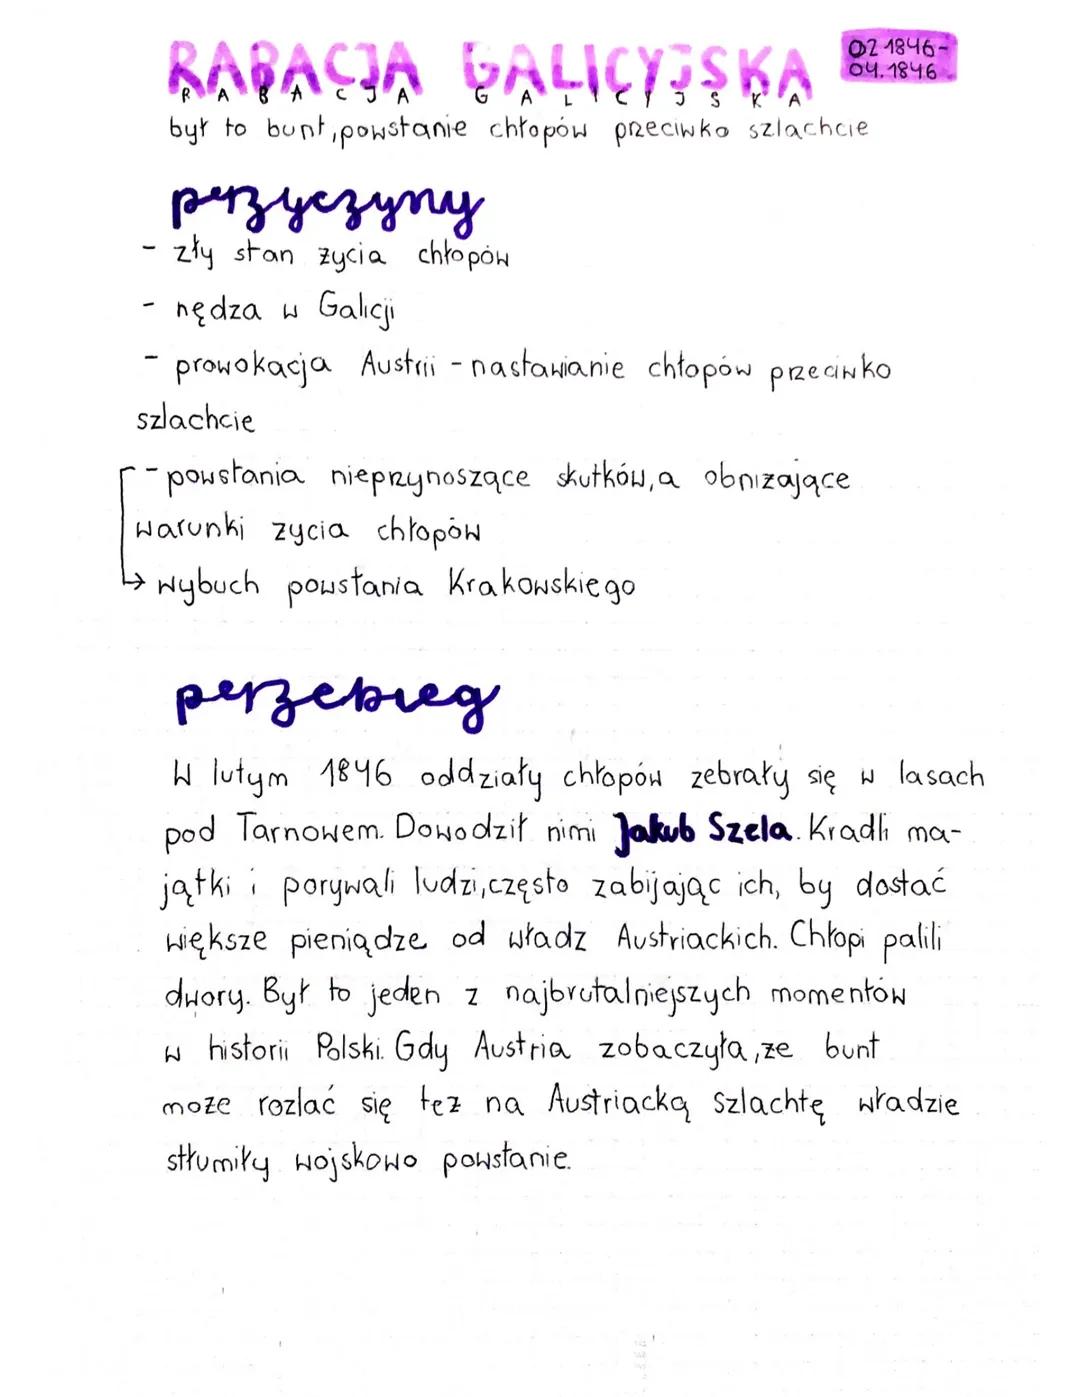 RABACJA GALICYJSKA
RABACJA GALICYJSKA
02.1846-
04.1846
był to bunt, powstanie chłopów przeciwko szlachcie
perzyczyny
- zły stan życia chłopów
- nędza w Galicji
- prowokacja Austrii - nastawianie chłopów przeciwko
szlachcie
- powstania nieprzynoszące skutków, a obniżające
warunki zycia chłopów
↳ wybuch powstania Krakowskiego
perzebieg
W lutym 1846 oddziały chłopów zebrały się w lasach
pod Tarnowem. Dowodził nimi Jakub Szela. Kradli ma-
jątki i porywali ludzi, często zabijając ich, by dostać
większe pieniądze od władz Austriackich. Chłopi palili
dwory. Był to jeden z najbrutalniejszych momentów
w historii Polski. Gdy Austria zobaczyła, ze bunt
może rozlać się też na Austriacką szlachtę władzie
stłumiły wojskowo powstanie.